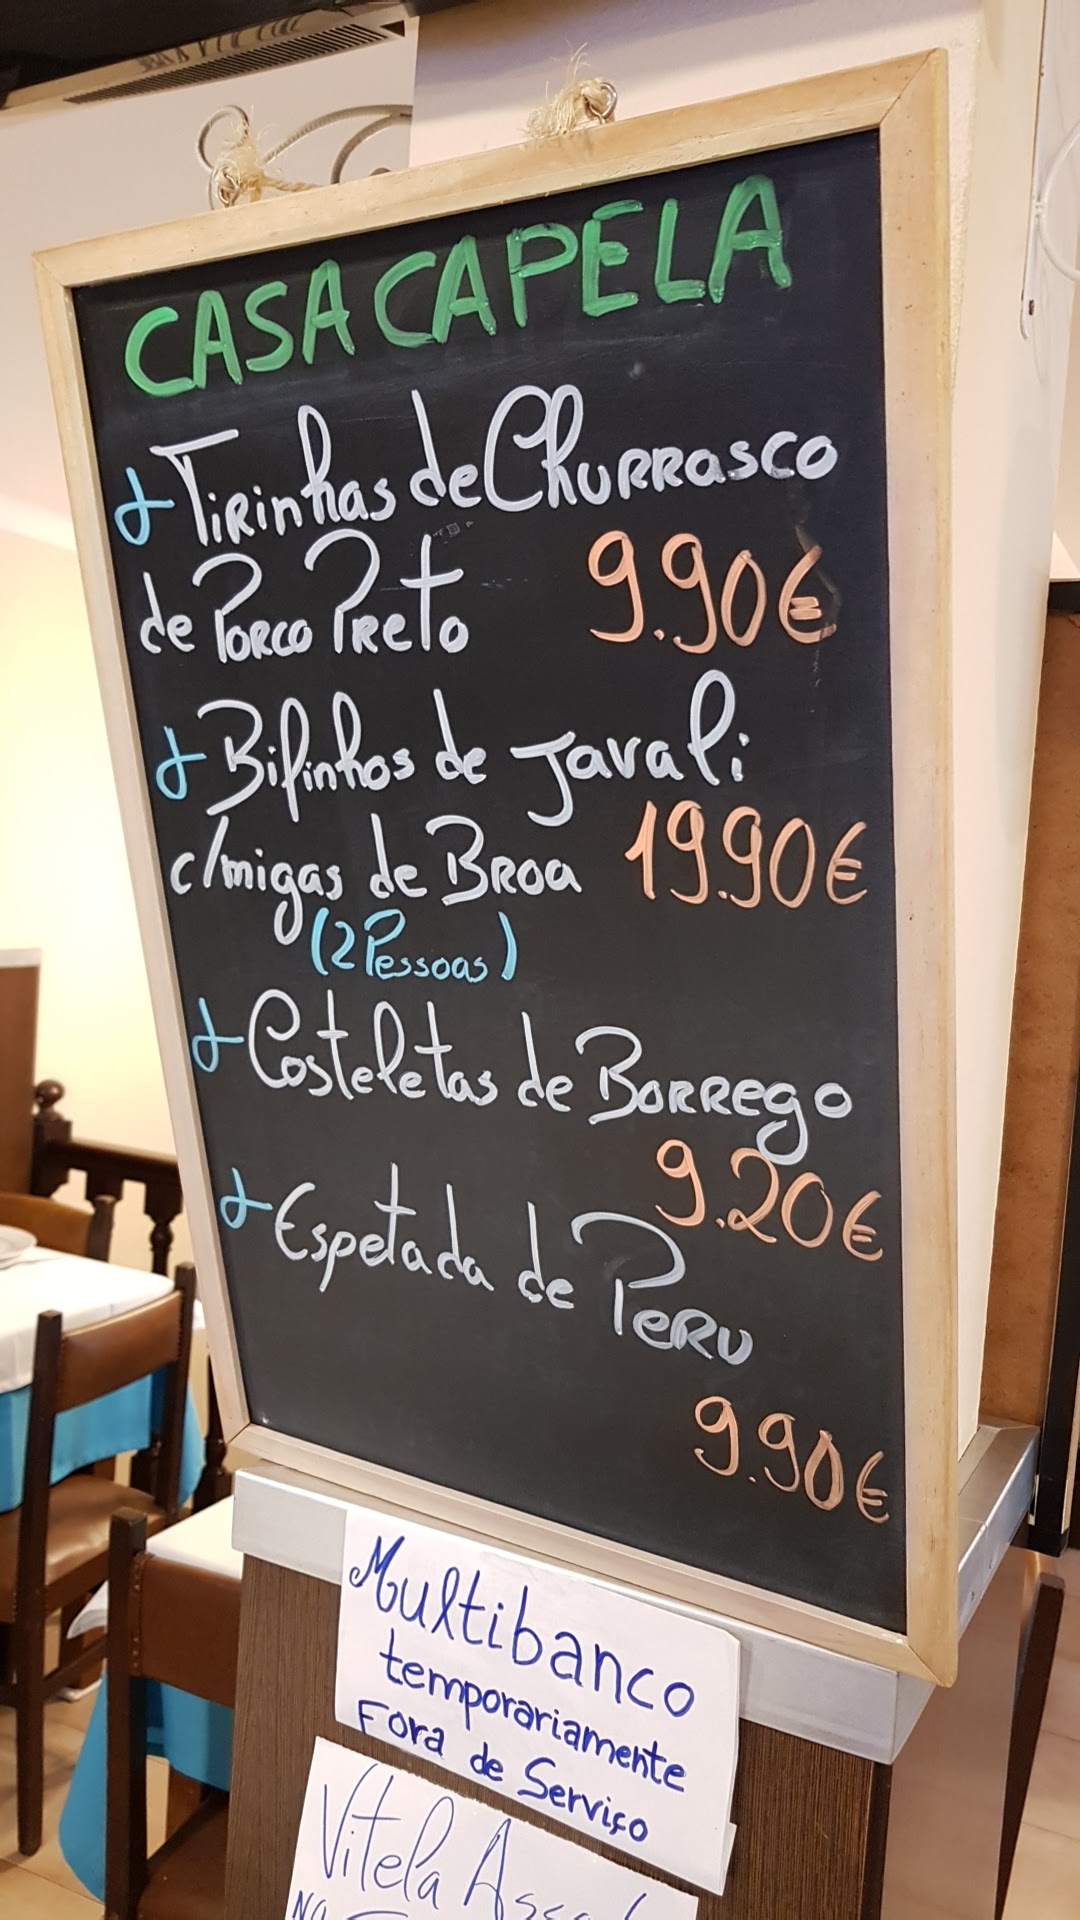 CASA CAPELA
Tirinhas de Churrasco
de Porco Preto 9.90€
Bifinhos de Javali
c/migas de Broa 19.90€
(2 Pessoas)
Costeletas de Borrego
9.20€
Espetada de Peru
9.90€
Multibanco
temporariamente
Fora de Serviço
Vitela